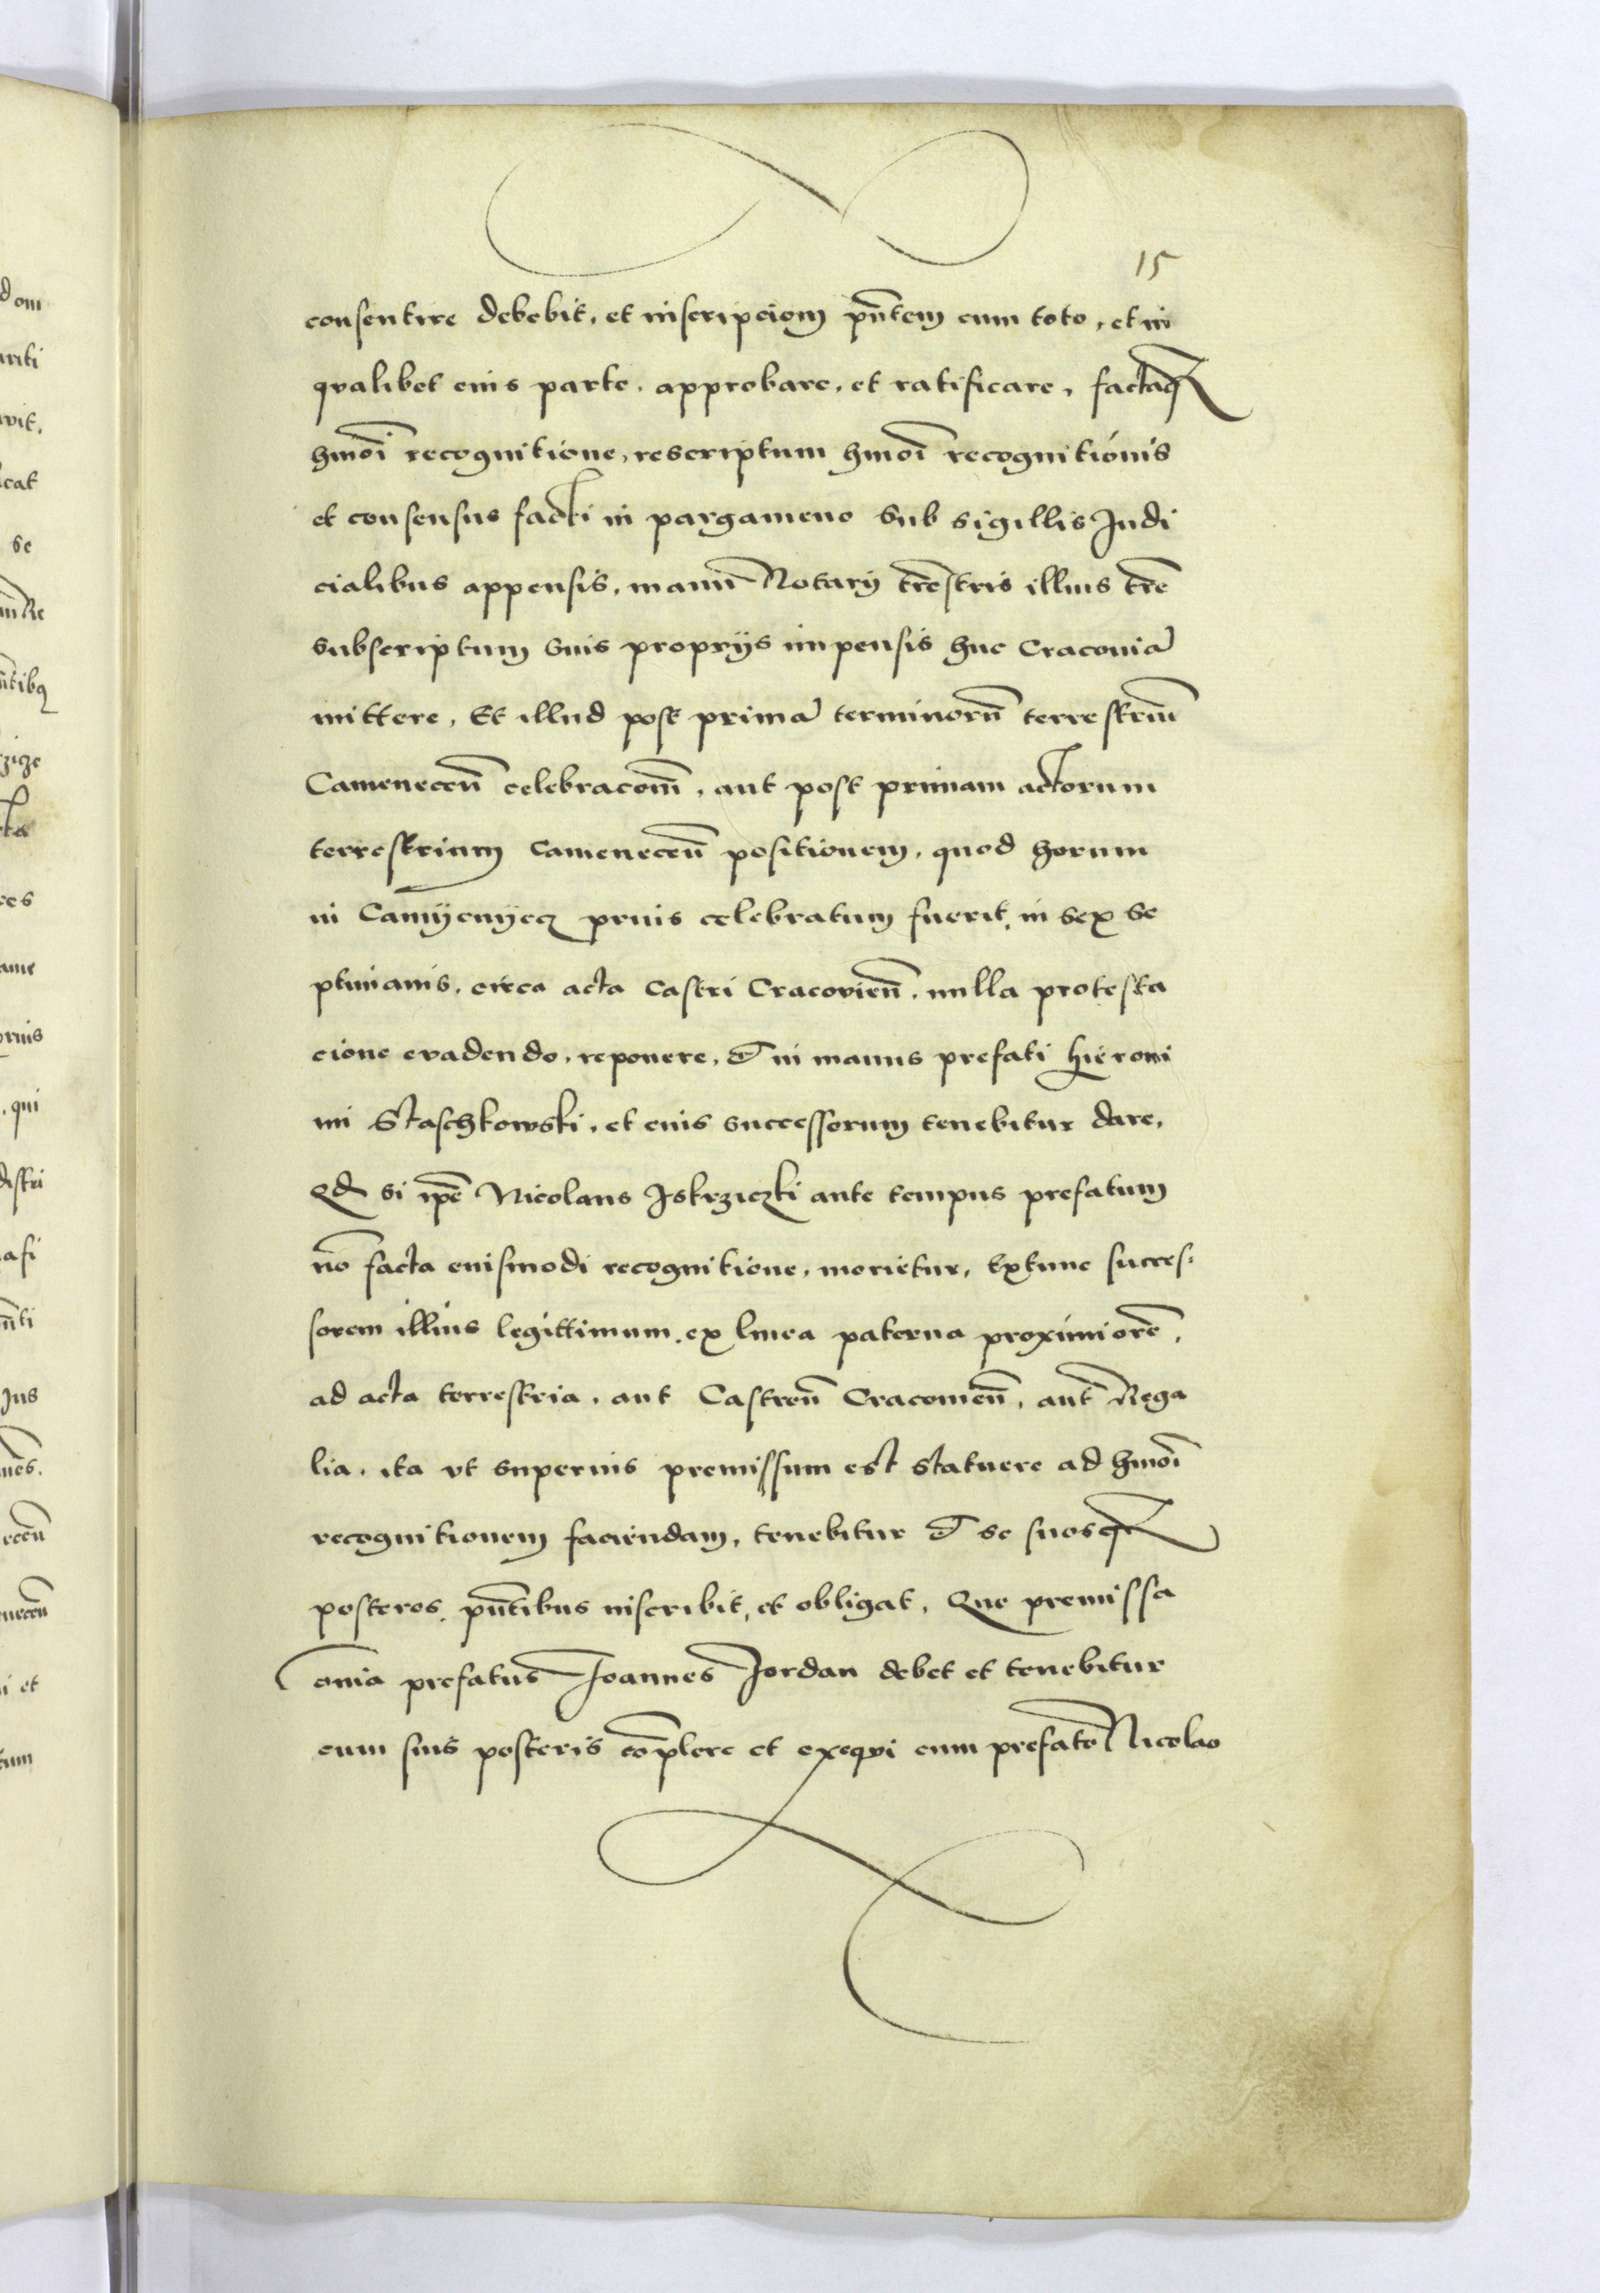 15
consentire debebit, et inscripciom pn̄tem cum toto, et in
qualibet eius parte, approbare, et ratificare, factaq₃
hmōi recognitione, rescriptum hmōi recognitionis
et consensus facti in pargameno sub sigillis Judi
cialibus appensis, manū Notarij tr̄estris illius tr̄e
subscriptum suis proprijs impensis huc Cracouiā
mittere, Et illud post primā terminorū terrestriū
Camenecen̄ celebracom̄, aut post primam actorum
terrestrium Camenecen̄ positionem, quod horum
in Camÿenÿecz prius celebratum fuerit, in sex se
ptimanis, circa acta Castri Cracovien̄, nulla protesta
cione evadendo, reponere, et in manus prefati Hieroni
mi Staschkowski, et eius successorum tenebitur dare,
Qd si ip̄e Nicolaus Jskrziczki ante tempus prefatum
nō facta euismodi recognitione, morietur, Extunc succes
sorem illius legittimum, ex linea paterna proximiorē,
ad acta terrestria, aut Castren̄ Cracouien̄, aut Rega
lia, ita vt superius premissum est statuere ad hmōi
recognitionem faciendam, tenebitur et se suosq₃
posteros, pn̄tibus inscribit, et obligat, Que premissa
om̄ia prefatus Joannes Jordan debet et tenebitur
cum suis posteris cōplere et exeqvi cum prefato Nicolao
dom
uit,
cat
se
tibq
ces
ame
qui
Jus
et
tum